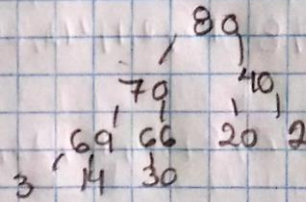 89
79 40
69 66 20 2
3 14 30